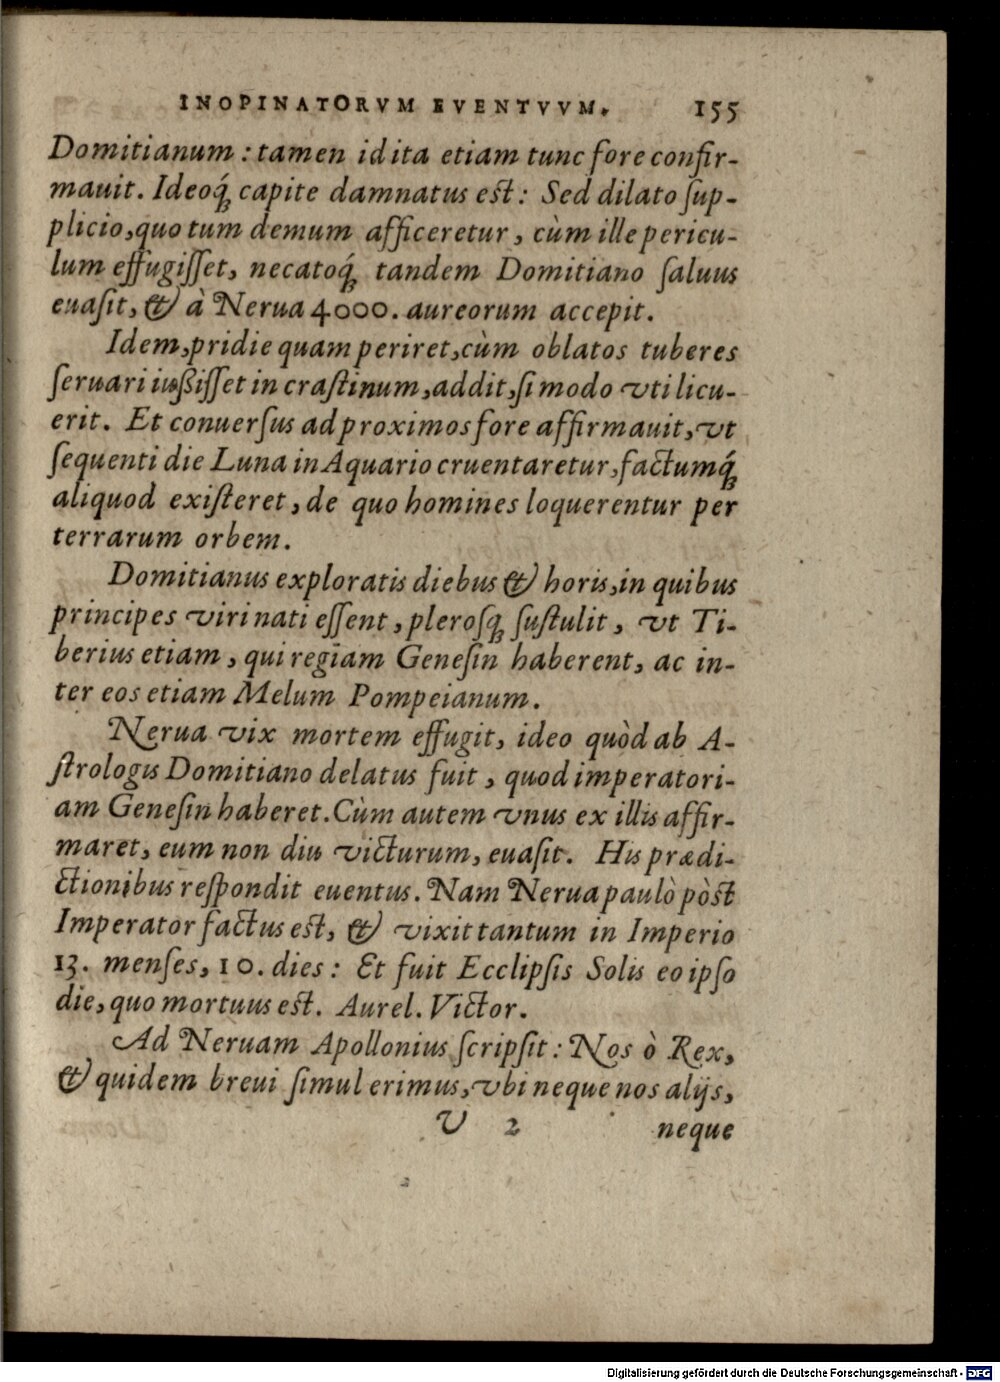 INOPINATORVM EVENTVVM. 155
Domitianum : tamen id ita etiam tunc fore confir-
mauit. Ideoq́; capite damnatus est : Sed dilato ſup-
plicio, quo tum demum afficeretur, cùm ille pericu-
lum effugiſſet, necatoq́; tandem Domitiano ſaluus
euaſit, & à Nerua 4000. aureorum accepit.
Idem, pridie quam periret, cùm oblatos tuberes
ſeruari iußiſſet in craſtinum, addit, ſi modo vti licu-
erit. Et conuerſus ad proximos fore affirmauit, vt
ſequenti die Luna in Aquario cruentaretur, factumq́;
aliquod exiſteret, de quo homines loquerentur per
terrarum orbem.
Domitianus exploratis diebus & horis, in quibus
principes viri nati eſſent, pleroſq; ſuſtulit, vt Ti-
berius etiam, qui regiam Geneſin haberent, ac in-
ter eos etiam Melum Pompeianum.
Nerua vix mortem effugit, ideo quòd ab A-
ſtrologis Domitiano delatus fuit, quod imperatori-
am Geneſin haberet. Cùm autem vnus ex illis affir-
maret, eum non diu victurum, euaſit. His prædi-
ctionibus reſpondit euentus. Nam Nerua paulò pòst
Imperator factus est, & vixit tantum in Imperio
13. menſes, 10. dies : Et fuit Ecclipſis Solis eo ipſo
die, quo mortuus est. Aurel. Victor.
Ad Neruam Apollonius ſcripſit : Nos ò Rex,
& quidem breui ſimul erimus, vbi neque nos alijs,
V 2 neque
Digitalisierung gefördert durch die Deutsche Forschungsgemeinschaft - DFG